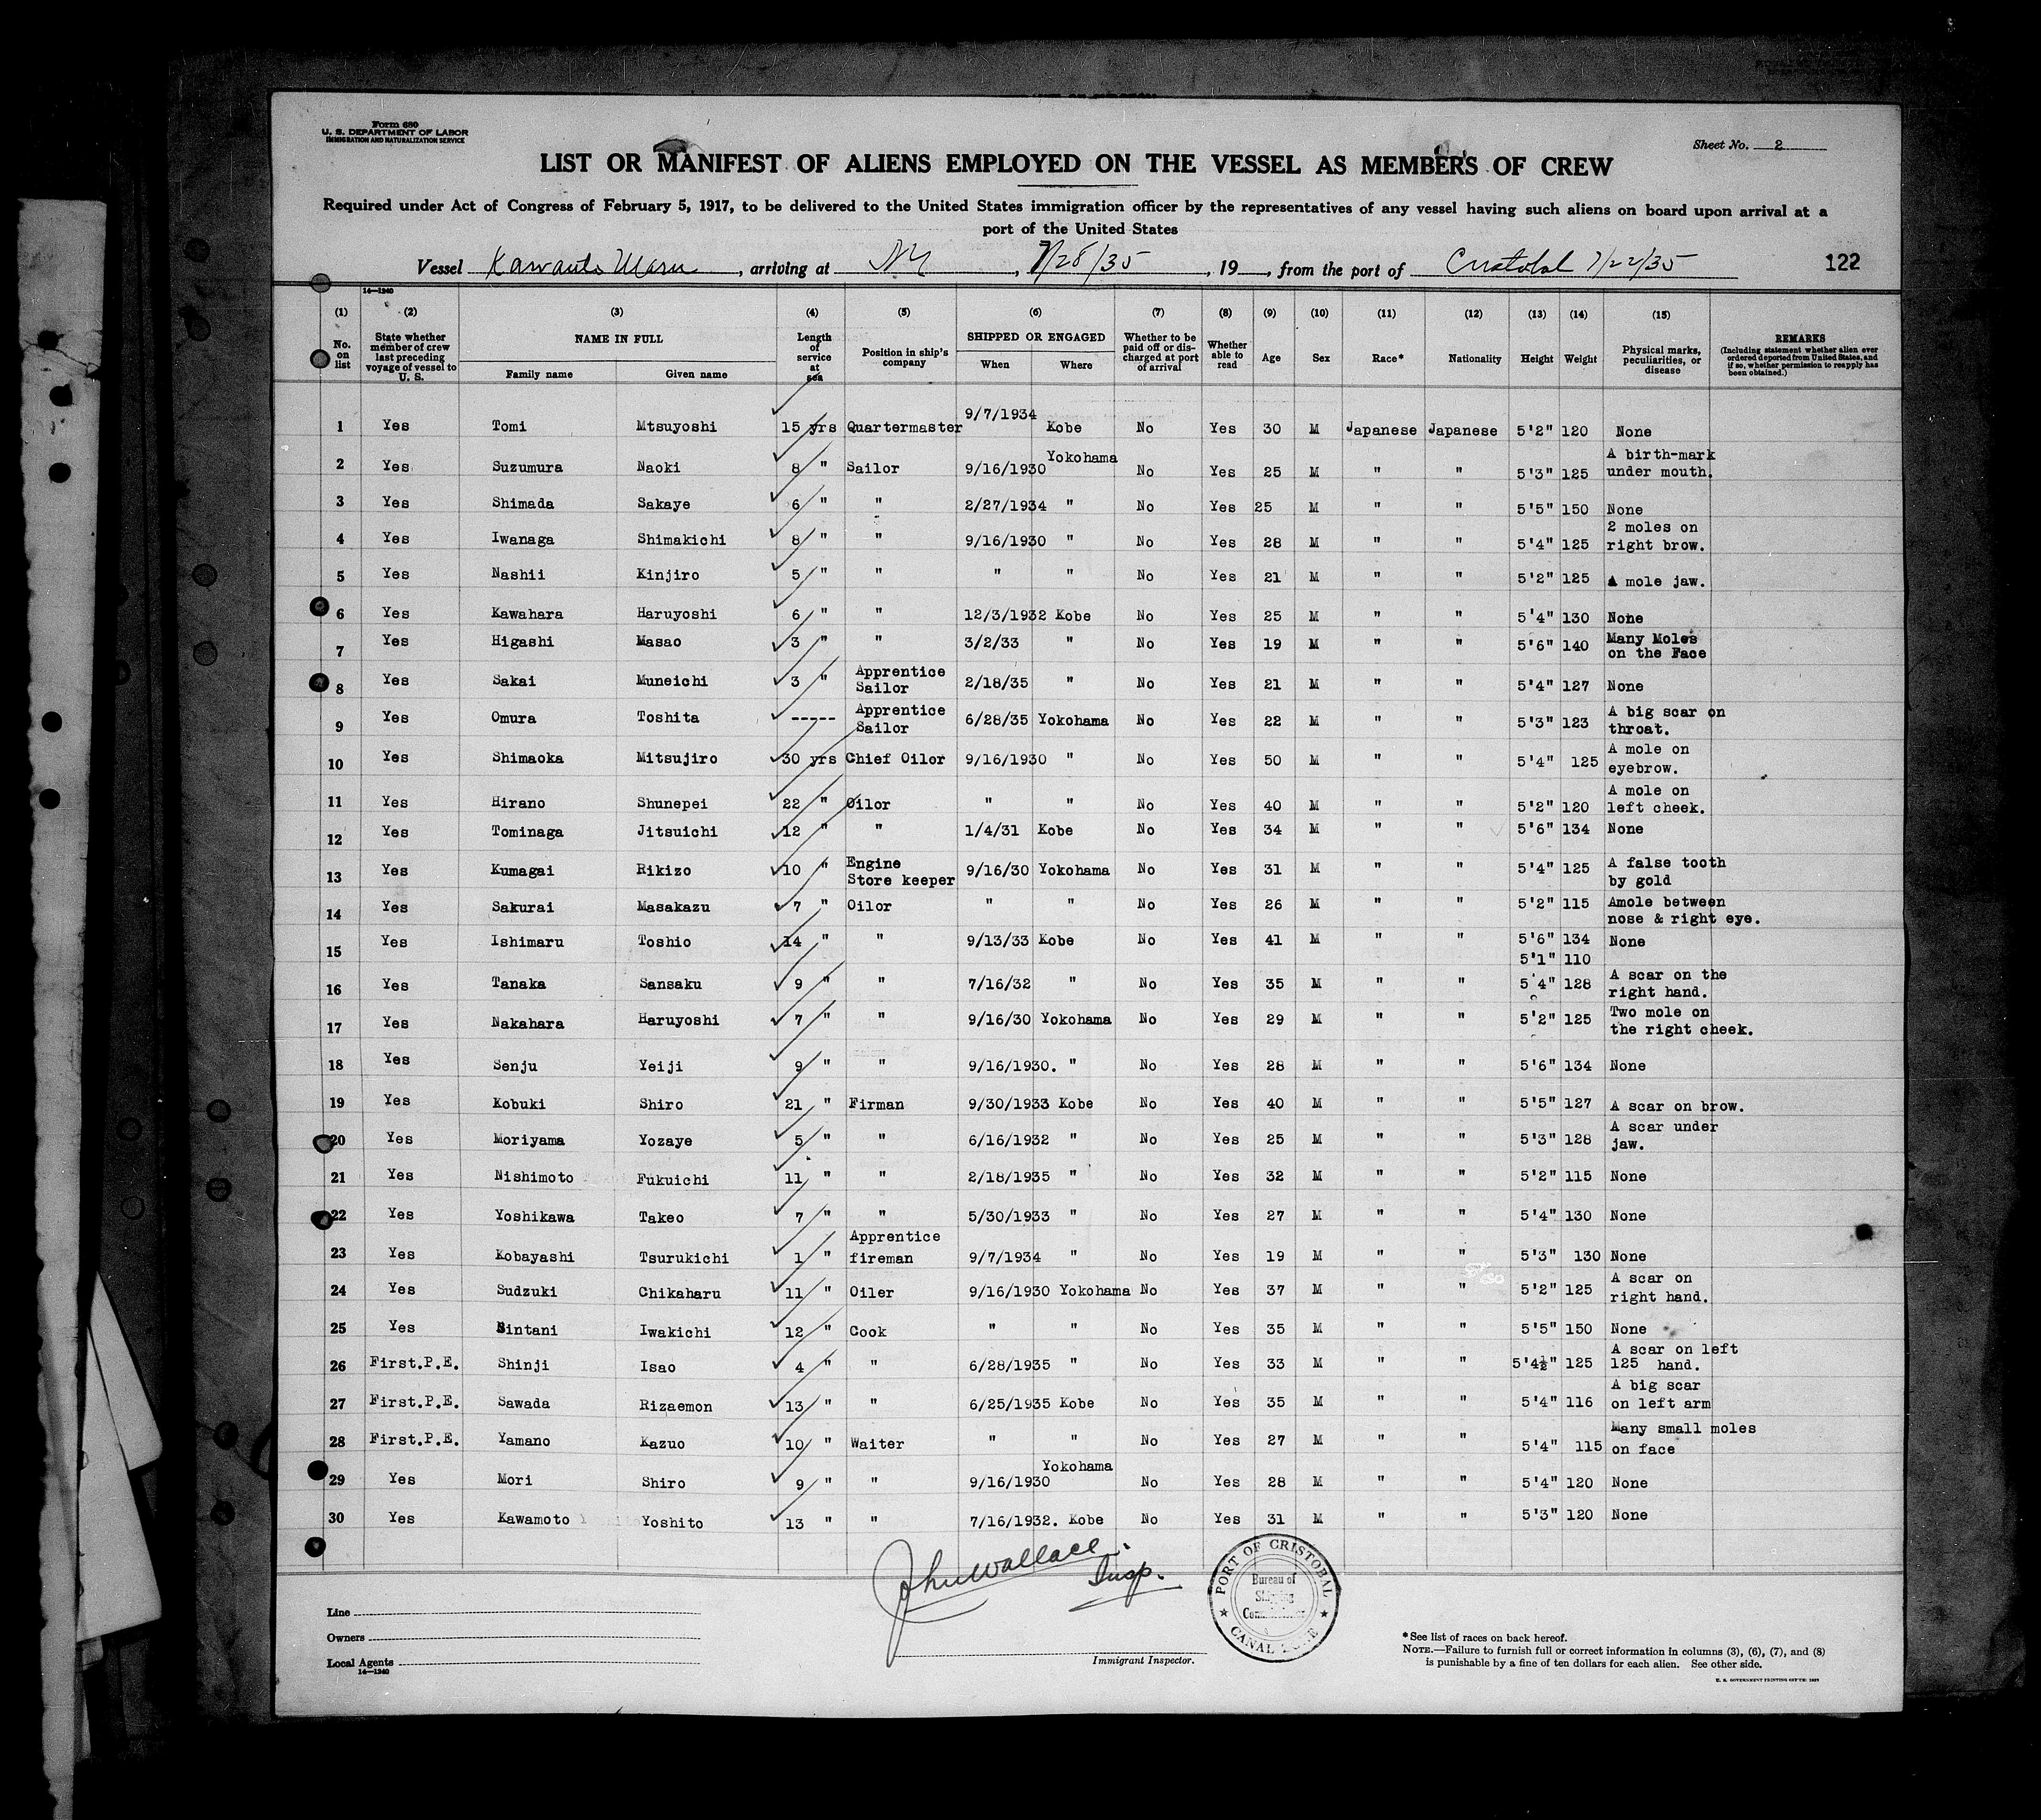 Form 680
U. S. DEPARTMENT OF LABOR
IMMIGRATION AND NATURALIZATION SERVICE
Sheet No. 2
LIST OR MANIFEST OF ALIENS EMPLOYED ON THE VESSEL AS MEMBERS OF CREW
Required under Act of Congress of February 5, 1917, to be delivered to the United States immigration officer by the representatives of any vessel having such aliens on board upon arrival at a
port of the United States
Vessel Maru, arriving at NY, 7/28/35, 19 , from the port of Cristobal 7/22/35 122
14—1240
(1) (2) (3) (4) (5) (6) (7) (8) (9) (10) (11) (12) (13) (14) (15)
No. on list State whether member of crew last preceding voyage of vessel to U. S. NAME IN FULL Family name Given name Length of service at sea Position in ship's company SHIPPED OR ENGAGED When Where Whether to be paid off or discharged at port of arrival Whether able to read Age Sex Race* Nationality Height Weight Physical marks, peculiarities, or disease REMARKS (Including statement whether alien ever ordered deported from United States, and if so, whether permission to reapply has been obtained.)
1 Yes Tomi Mtsuyoshi 15 yrs Quartermaster 9/7/1934 Kobe No Yes 30 M Japanese Japanese 5'2" 120 None
2 Yes Suzumura Naoki 8 " Sailor 9/16/1930 Yokohama No Yes 25 M " " 5'3" 125 A birth-mark under mouth.
3 Yes Shimada Sakaye 6 " " 2/27/1934 " No Yes 25 M " " 5'5" 150 None
4 Yes Iwanaga Shimakichi 8 " " 9/16/1930 " No Yes 28 M " " 5'4" 125 2 moles on right brow.
5 Yes Nashii Kinjiro 5 " " " " No Yes 21 M " " 5'2" 125 A mole jaw.
6 Yes Kawahara Haruyoshi 6 " " 12/3/1932 Kobe No Yes 25 M " " 5'4" 130 None
7 Yes Higashi Masao 3 " " 3/2/33 " No Yes 19 M " " 5'6" 140 Many Moles on the Face
8 Yes Sakai Muneichi 3 " Apprentice Sailor 2/18/35 " No Yes 21 M " " 5'4" 127 None
9 Yes Omura Toshita ----- Apprentice Sailor 6/28/35 Yokohama No Yes 22 M " " 5'3" 123 A big scar on throat.
10 Yes Shimaoka Mitsujiro 30 yrs Chief Oilor 9/16/1930 " No Yes 50 M " " 5'4" 125 A mole on eyebrow.
11 Yes Hirano Shunepei 22 " Oilor " " No Yes 40 M " " 5'2" 120 A mole on left cheek.
12 Yes Tominaga Jitsuichi 12 " " 1/4/31 Kobe No Yes 34 M " " 5'6" 134 None
13 Yes Kumagai Rikizo 10 " Engine Store keeper 9/16/30 Yokohama No Yes 31 M " " 5'4" 125 A false tooth by gold
14 Yes Sakurai Masakazu 7 " Oilor " " No Yes 26 M " " 5'2" 115 Amole between nose & right eye.
15 Yes Ishimaru Toshio 14 " " 9/13/33 Kobe No Yes 41 M " " 5'6" 134 None
5'1" 110
16 Yes Tanaka Sansaku 9 " " 7/16/32 " No Yes 35 M " " 5'4" 128 A scar on the right hand.
17 Yes Nakahara Haruyoshi 7 " " 9/16/30 Yokohama No Yes 29 M " " 5'2" 125 Two mole on the right cheek.
18 Yes Senju Yeiji 9 " " 9/16/1930. " No Yes 28 M " " 5'6" 134 None
19 Yes Kobuki Shiro 21 " Firman 9/30/1933 Kobe No Yes 40 M " " 5'5" 127 A scar on brow.
20 Yes Moriyama Yozaye 5 " " 6/16/1932 " No Yes 25 M " " 5'3" 128 A scar under jaw.
21 Yes Nishimoto Fukuichi 11 " " 2/18/1935 " No Yes 32 M " " 5'2" 115 None
22 Yes Yoshikawa Takeo 7 " " 5/30/1933 " No Yes 27 M " " 5'4" 130 None
23 Yes Kobayashi Tsurukichi 1 " Apprentice fireman 9/7/1934 " No Yes 19 M " " 5'3" 130 None
24 Yes Sudzuki Chikaharu 11 " Oiler 9/16/1930 Yokohama No Yes 37 M " " 5'2" 125 A scar on right hand.
25 Yes Nintani Iwakichi 12 " Cook " " No Yes 35 M " " 5'5" 150 None
26 First.P.E. Shinji Isao 4 " " 6/28/1935 " No Yes 33 M " " 5'4½" 125 A scar on left 125 hand.
27 First.P.E. Sawada Rizaemon 13 " " 6/25/1935 Kobe No Yes 35 M " " 5'4" 116 A big scar on left arm
28 First.P.E. Yamano Kazuo 10 " Waiter " " No Yes 27 M " " 5'4" 115 Many small moles on face
29 Yes Mori Shiro 9 " " 9/16/1930 Yokohama No Yes 28 M " " 5'4" 120 None
30 Yes Kawamoto Yoshito 13 " " 7/16/1932. Kobe No Yes 31 M " " 5'3" 120 None
John Wallace Insp.
PORT OF CRISTOBAL
Bureau of
Shipping
CANAL ZONE
Line
Owners
Local Agents
14—1240
Immigrant Inspector.
*See list of races on back hereof.
NOTE.—Failure to furnish full or correct information in columns (3), (6), (7), and (8)
is punishable by a fine of ten dollars for each alien. See other side.